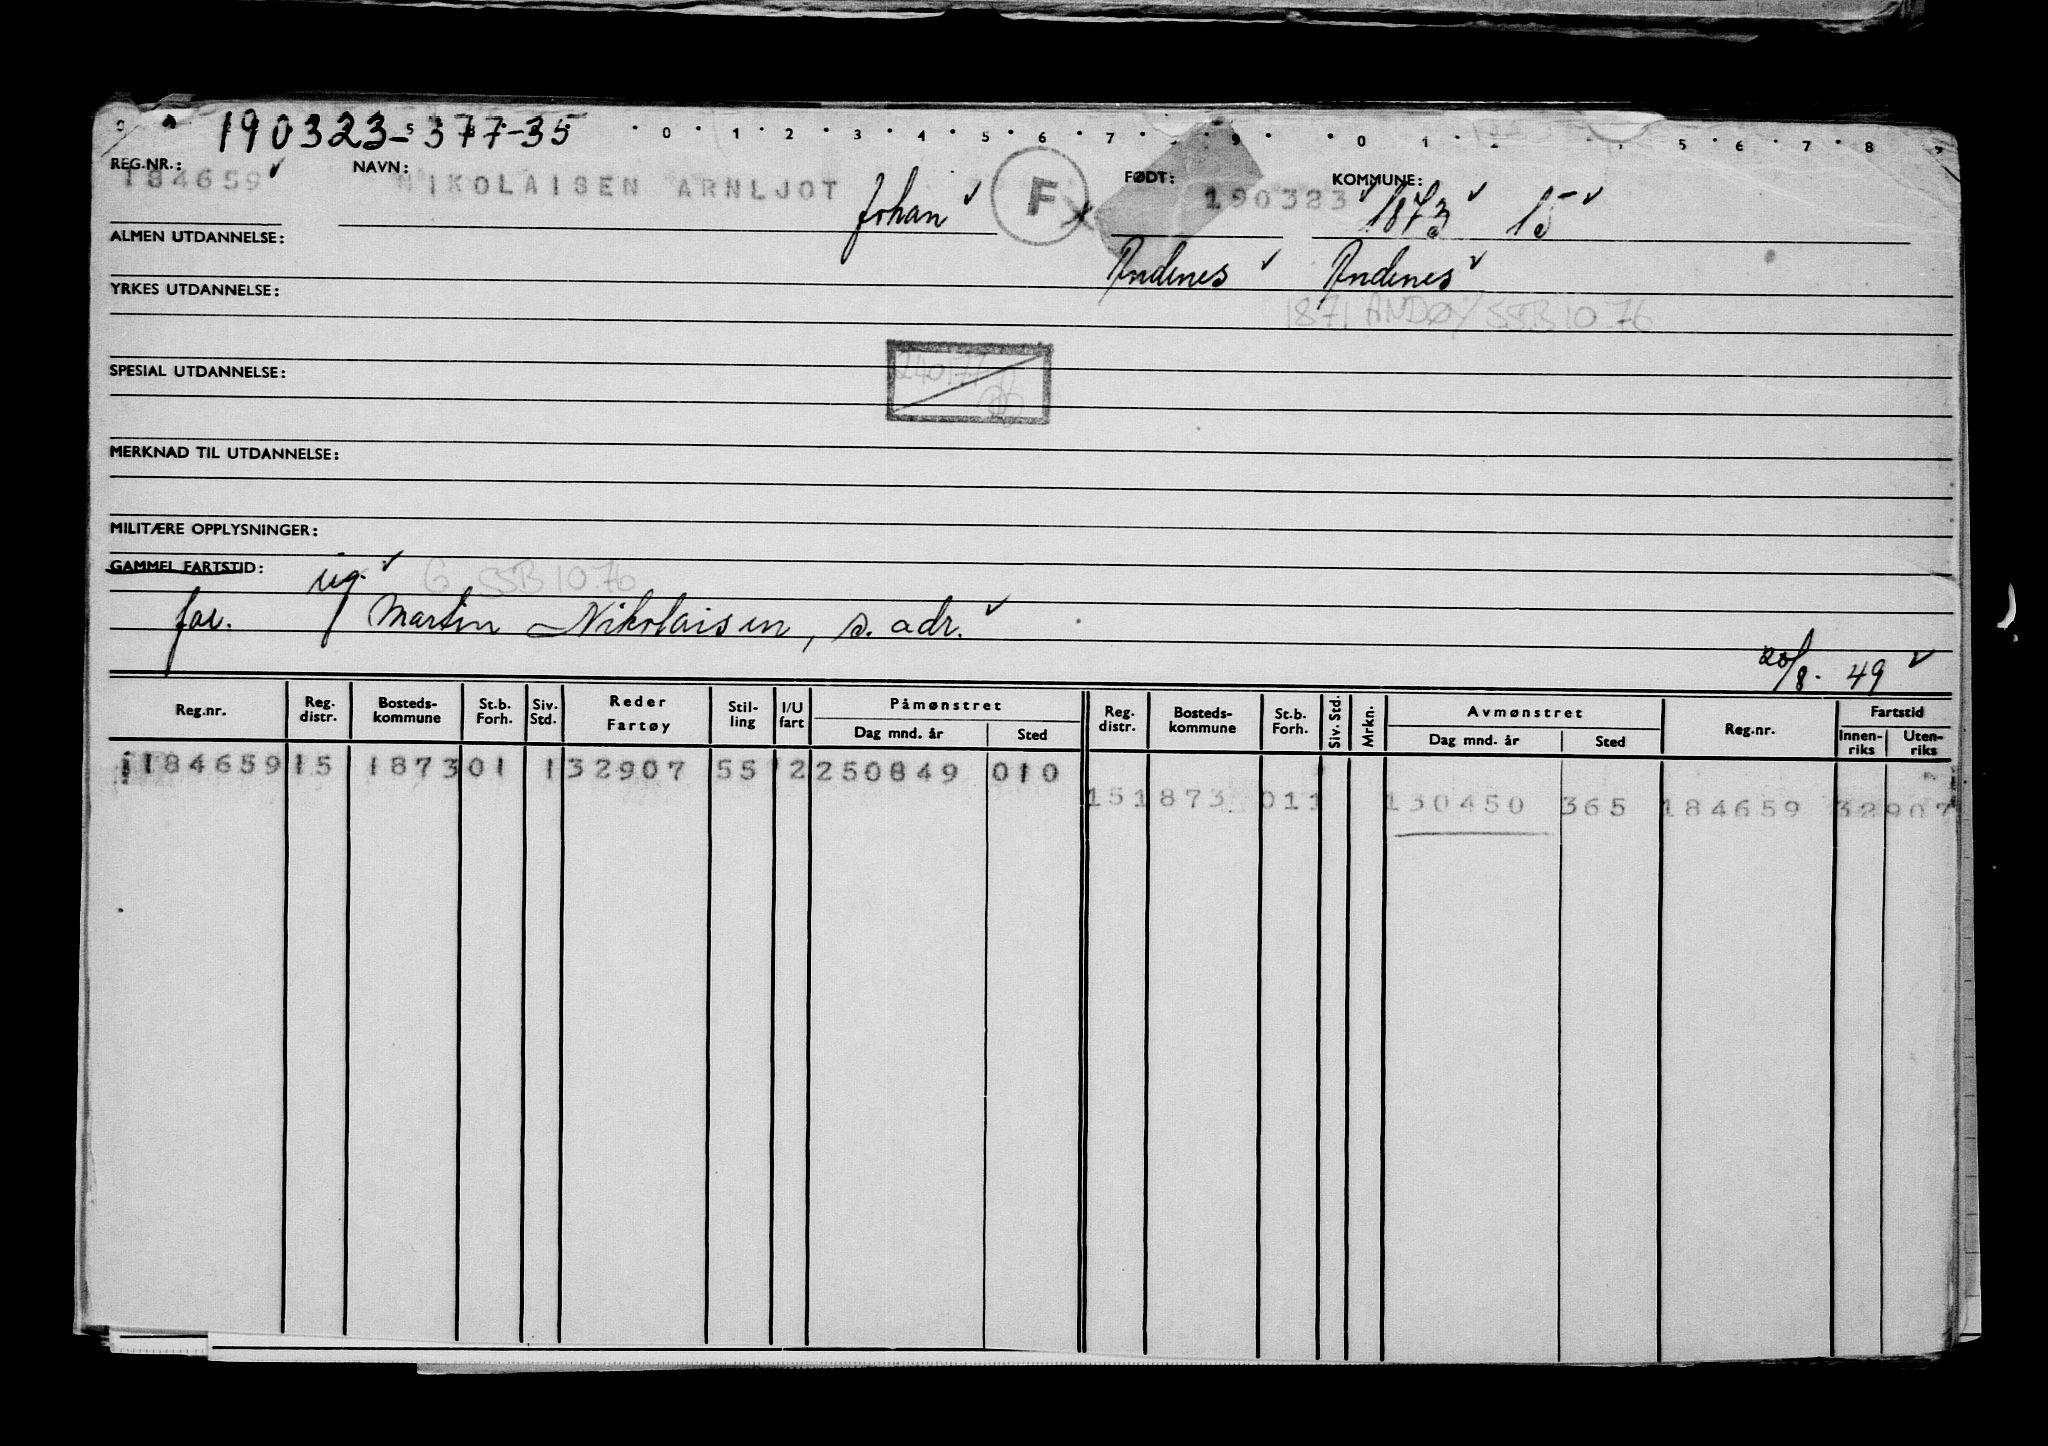 190323-377-35
0 1 2 3 4 5 6 7 9 0 1 5 6 7 8 9
REG.NR.: 184659 NAVN: NIKOLAISEN ARNLJOT Johan F x FØDT: 190323 KOMMUNE: 1873 15
ALMEN UTDANNELSE: Andenes Andenes
YRKES UTDANNELSE: 1871 ANDØY SSB 10 76
SPESIAL UTDANNELSE:
MERKNAD TIL UTDANNELSE:
MILITÆRE OPPLYSNINGER:
GAMMEL FARTSTID: ug. G SSB 10 76
far. Martin Nikolaisen, s. adr.
20/8. 49
Reg.nr. Reg. distr. Bosteds-kommune St.b. Forh. Siv. Std. Reder Fartøy Stil-ling I/U fart Påmønstret Dag mnd. år Sted Reg. distr. Bosteds-kommune St.b. Forh. Siv. Std. Mrkn. Avmønstret Dag mnd. år Sted Reg.nr. Fartstid Innen-riks Uten-riks
184659 15 1873 01 1 32907 55 2 250849 010
15 1873 011 130450 365 184659 32907